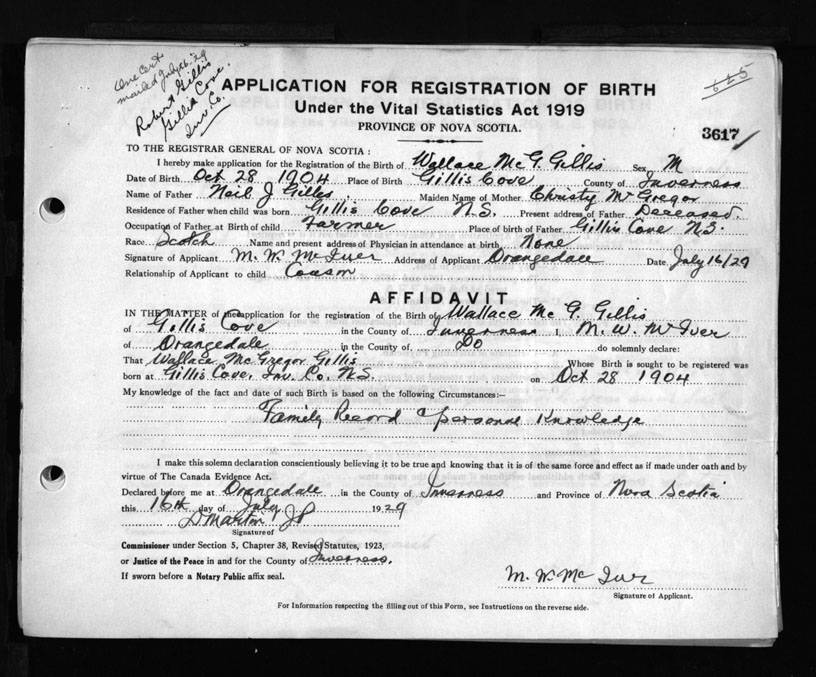 One Cert.
mailed July 26-29
Robert Gillis
Gillis Cove.
Inv. Co.
665
APPLICATION FOR REGISTRATION OF BIRTH
Under the Vital Statistics Act 1919
PROVINCE OF NOVA SCOTIA.
3617
TO THE REGISTRAR GENERAL OF NOVA SCOTIA :
I hereby make application for the Registration of the Birth of Wallace Mc G. Gillis Sex M
Date of Birth Oct 28 1904 Place of Birth Gillis Cove County of Inverness
Name of Father Neil J Gilles Maiden Name of Mother Christy McGregor
Residence of Father when child was born Gillis Cove N.S. Present address of Father Deceased.
Occupation of Father at Birth of child Farmer Place of birth of Father Gillis Cove N.S.
Race Scotch Name and present address of Physician in attendance at birth None
Signature of Applicant M. W. McIver Address of Applicant Orangedale Date July 16/29
Relationship of Applicant to child Coasm
AFFIDAVIT
IN THE MATTER of the application for the registration of the Birth of Wallace Mc G. Gillis
of Gillis Cove in the County of Inverness I, M. W. McIver
of Orangedale in the County of Do do solemnly declare:
That Wallace McGregor Gillis Whose Birth is sought to be registered was
born at Gillis Cove, Inv. Co. N.S. on Oct 28 1904
My knowledge of the fact and date of such Birth is based on the following Circumstances:—
Family Record & personal Knowledge
I make this solemn declaration conscientiously believing it to be true and knowing that it is of the same force and effect as if made under oath and by
virtue of The Canada Evidence Act.
Declared before me at Orangedale in the County of Inverness and Province of Nova Scotia
this 16th day of July 1929
D Martin JP
Signature of
Commissioner under Section 5, Chapter 38, Revised Statutes, 1923,
or Justice of the Peace in and for the County of Inverness.
If sworn before a Notary Public affix seal.
M. W. McIver
Signature of Applicant.
For Information respecting the filling out of this Form, see Instructions on the reverse side.